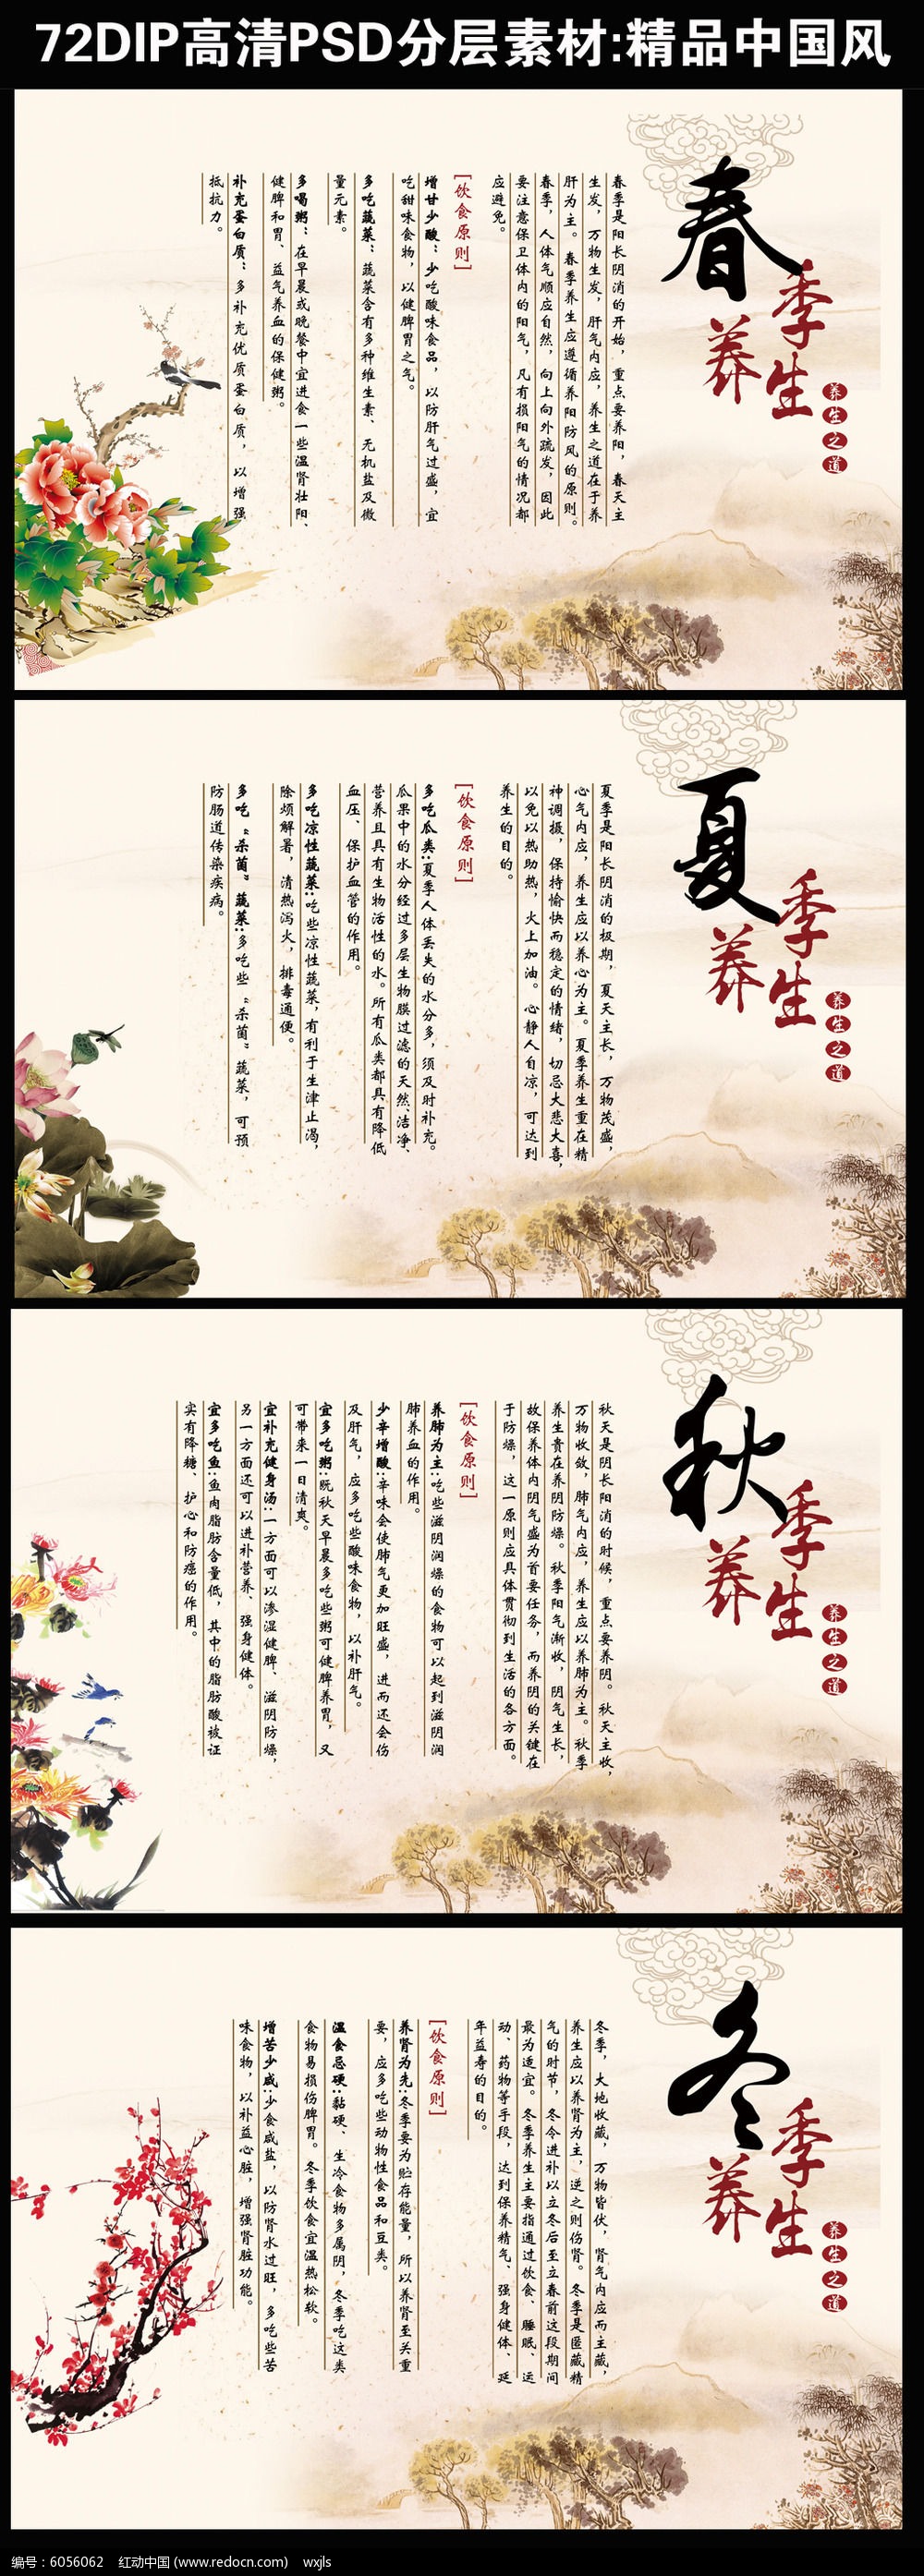 72DIP高清PSD分层素材:精品中国风
春季
养生
养生之道
春季是阳长阴消的开始，重点要养阳，春天主
生发，万物生发，肝气内应，养生之道在于养
肝为主。春季养生应遵循养阳防风的原则。
春季，人体气顺应自然，向上向外疏发，因此
要注意保卫体内的阳气，凡有损阳气的情况都
应避免。
[饮食原则]
增甘少酸：少吃酸味食品，以防肝气过盛，宜
吃甜味食物，以健脾胃之气。
多吃蔬菜：蔬菜含有多种维生素、无机盐及微
量元素。
多喝粥：在早晨或晚餐中宜进食一些温肾壮阳、
健脾和胃、益气养血的保健粥。
补充蛋白质：多补充优质蛋白质，以增强
抵抗力。
夏季
养生
养生之道
夏季是阳长阴消的极期，夏天主长，万物茂盛，
心气内应，养生应以养心为主。夏季养生重在精
神调摄，保持愉快而稳定的情绪，切忌大悲大喜，
以免以热助热，火上加油。心静人自凉，可达到
养生的目的。
[饮食原则]
多吃瓜类:夏季人体丢失的水分多，须及时补充。
瓜果中的水分经过多层生物膜过滤的天然、洁净、
营养且具有生物活性的水。所有瓜类都具有降低
血压、保护血管的作用。
多吃凉性蔬菜:吃些凉性蔬菜，有利于生津止渴，
除烦解暑，清热泻火，排毒通便。
多吃“杀菌”蔬菜:多吃些“杀菌”蔬菜，可预
防肠道传染疾病。
秋季
养生
养生之道
秋天是阴长阳消的时候，重点要养阴。秋天主收，
万物收敛，肺气内应，养生应以养肺为主。秋季
养生贵在养阴防燥。秋季阳气渐收，阴气生长，
故保养体内阴气盛为首要任务，而养阴的关键在
于防燥，这一原则应具体贯彻到生活的各方面。
[饮食原则]
养肺为主:吃些滋阴润燥的食物可以起到滋阴润
肺养血的作用。
少辛增酸:辛味会使肺气更加旺盛，进而还会伤
及肝气，应多吃些酸味食物，以补肝气。
宜多吃粥:既秋天早晨多吃些粥可健脾养胃，又
可带来一日清爽。
宜补充健身汤:一方面可以渗湿健脾、滋阴防燥，
另一方面还可以进补营养、强身健体。
宜多吃鱼:鱼肉脂肪含量低，其中的脂肪酸被证
实有降糖、护心和防癌的作用。
冬季
养生
养生之道
冬季，大地收藏，万物皆伏，肾气内应而主藏，
养生应以养肾为主，逆之则伤肾。冬季是匿藏精
气的时节，冬令进补以立冬后至立春前这段期间
最为适宜。冬季养生主要指通过饮食、睡眠、运
动、药物等手段，达到保养精气、强身健体、延
年益寿的目的。
[饮食原则]
养肾为先:冬季要为贮存能量，所以养肾至关重
要，应多吃些动物性食品和豆类。
温食忌硬:黏硬、生冷食物多属阴，冬季吃这类
食物易损伤脾胃。冬季饮食宜温热松软。
增苦少咸:少食咸盐，以防肾水过旺，多吃些苦
味食物，以补益心脏，增强肾脏功能。
编号：6056062 红动中国 (www.redocn.com) wxjls